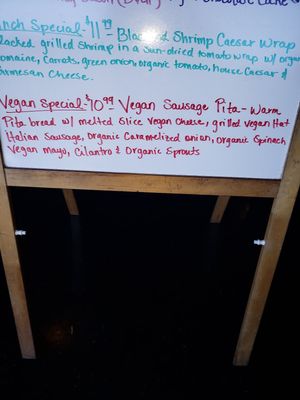 Chocolate Cake
nch Special - $11.99 - Shrimp Caesar Wrap
lacked grilled Shrimp in a Sun-dried tomato wrap w/ orga
omaine, Carrots, green onion, organic tomato, House Caesar &
armesan Cheese.
Vegan Special - $10.99 Vegan Sausage Pita - Warm
Pita bread w/ melted Slice vegan cheese, grilled vegan Hot
Italian Sausage, organic Caramelized onion, organic Spinach
Vegan mayo, Cilantro & Organic Sprouts